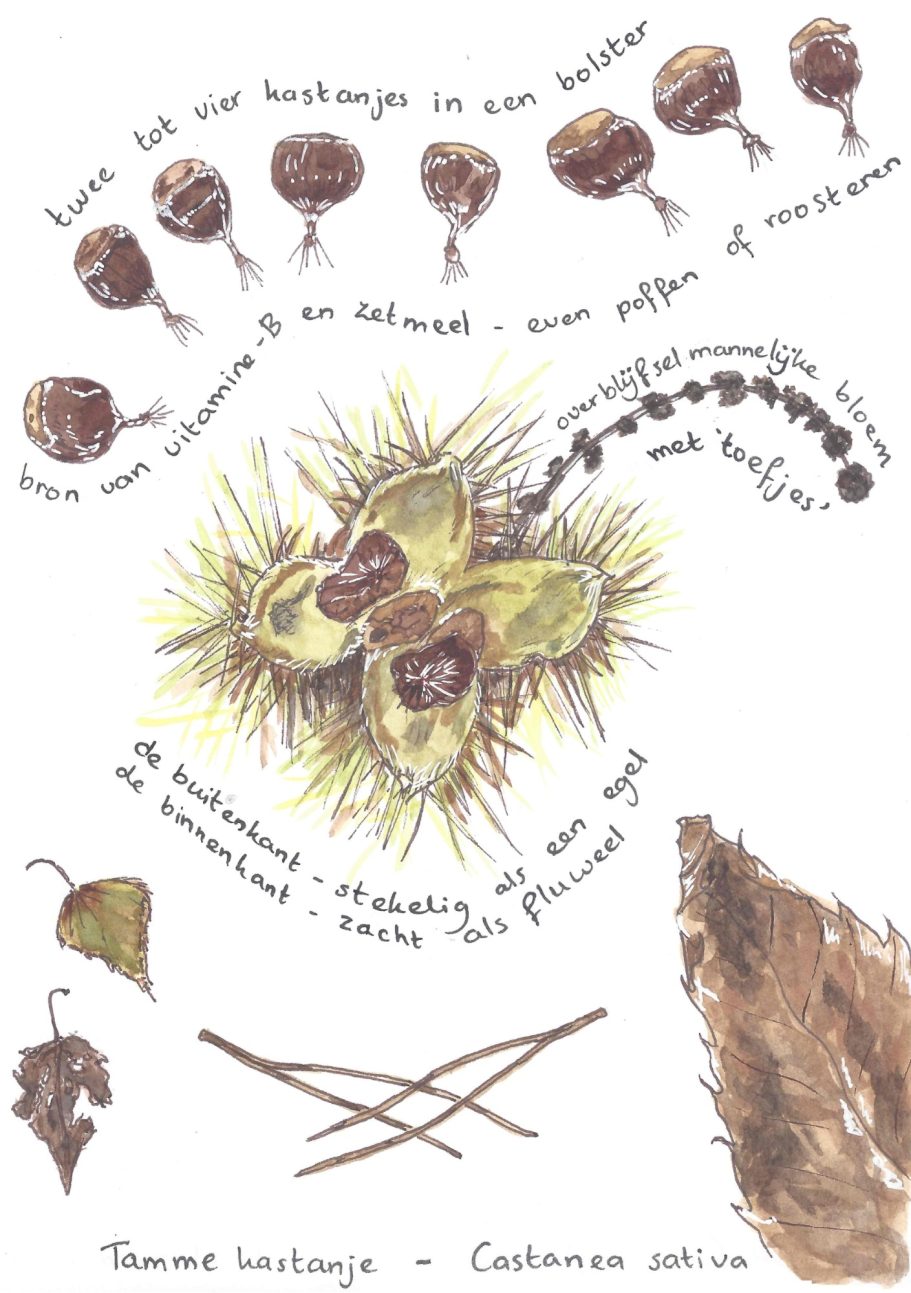 twee tot vier kastanjes in een bolster
bron van vitamine-B en zetmeel - even poffen of roosteren
overblijfsel mannelijke bloem
met 'toefjes'
de buitenkant - stekelig als een egel
de binnenkant - zacht als fluweel
Tamme kastanje - Castanea sativa